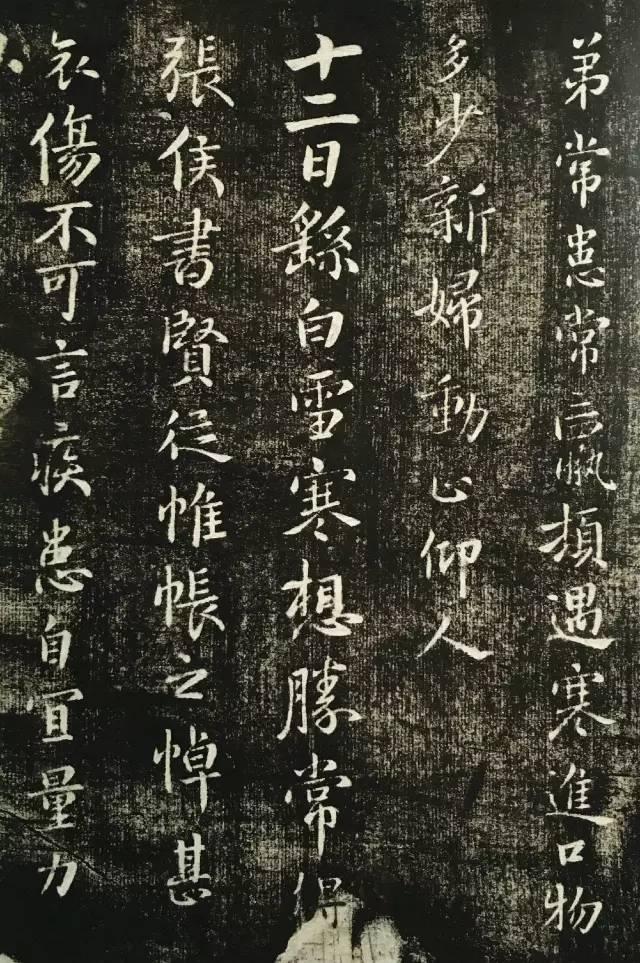 弟常患常羸頓遇寒進口物
多少新婦動止仰人
十二日繇白雪寒想勝常得
張侯書賢從帷帳之悼甚
哀傷不可言疾患自宜量力